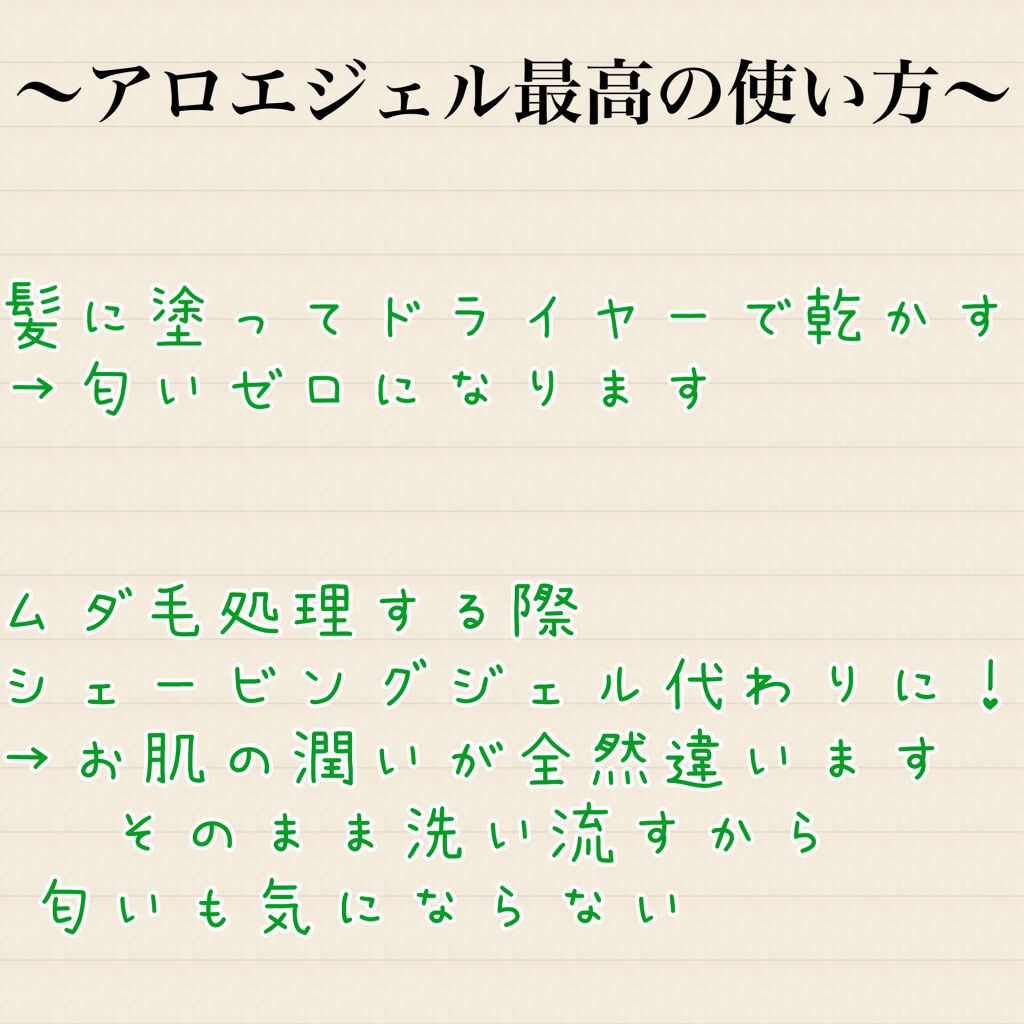 〜アロエジェル最高の使い方〜
髪に塗ってドライヤーで乾かす
→匂いゼロになります
ムダ毛処理する際
シェービングジェル代わりに!
→お肌の潤いが全然違います
そのまま洗い流すから
匂いも気にならない